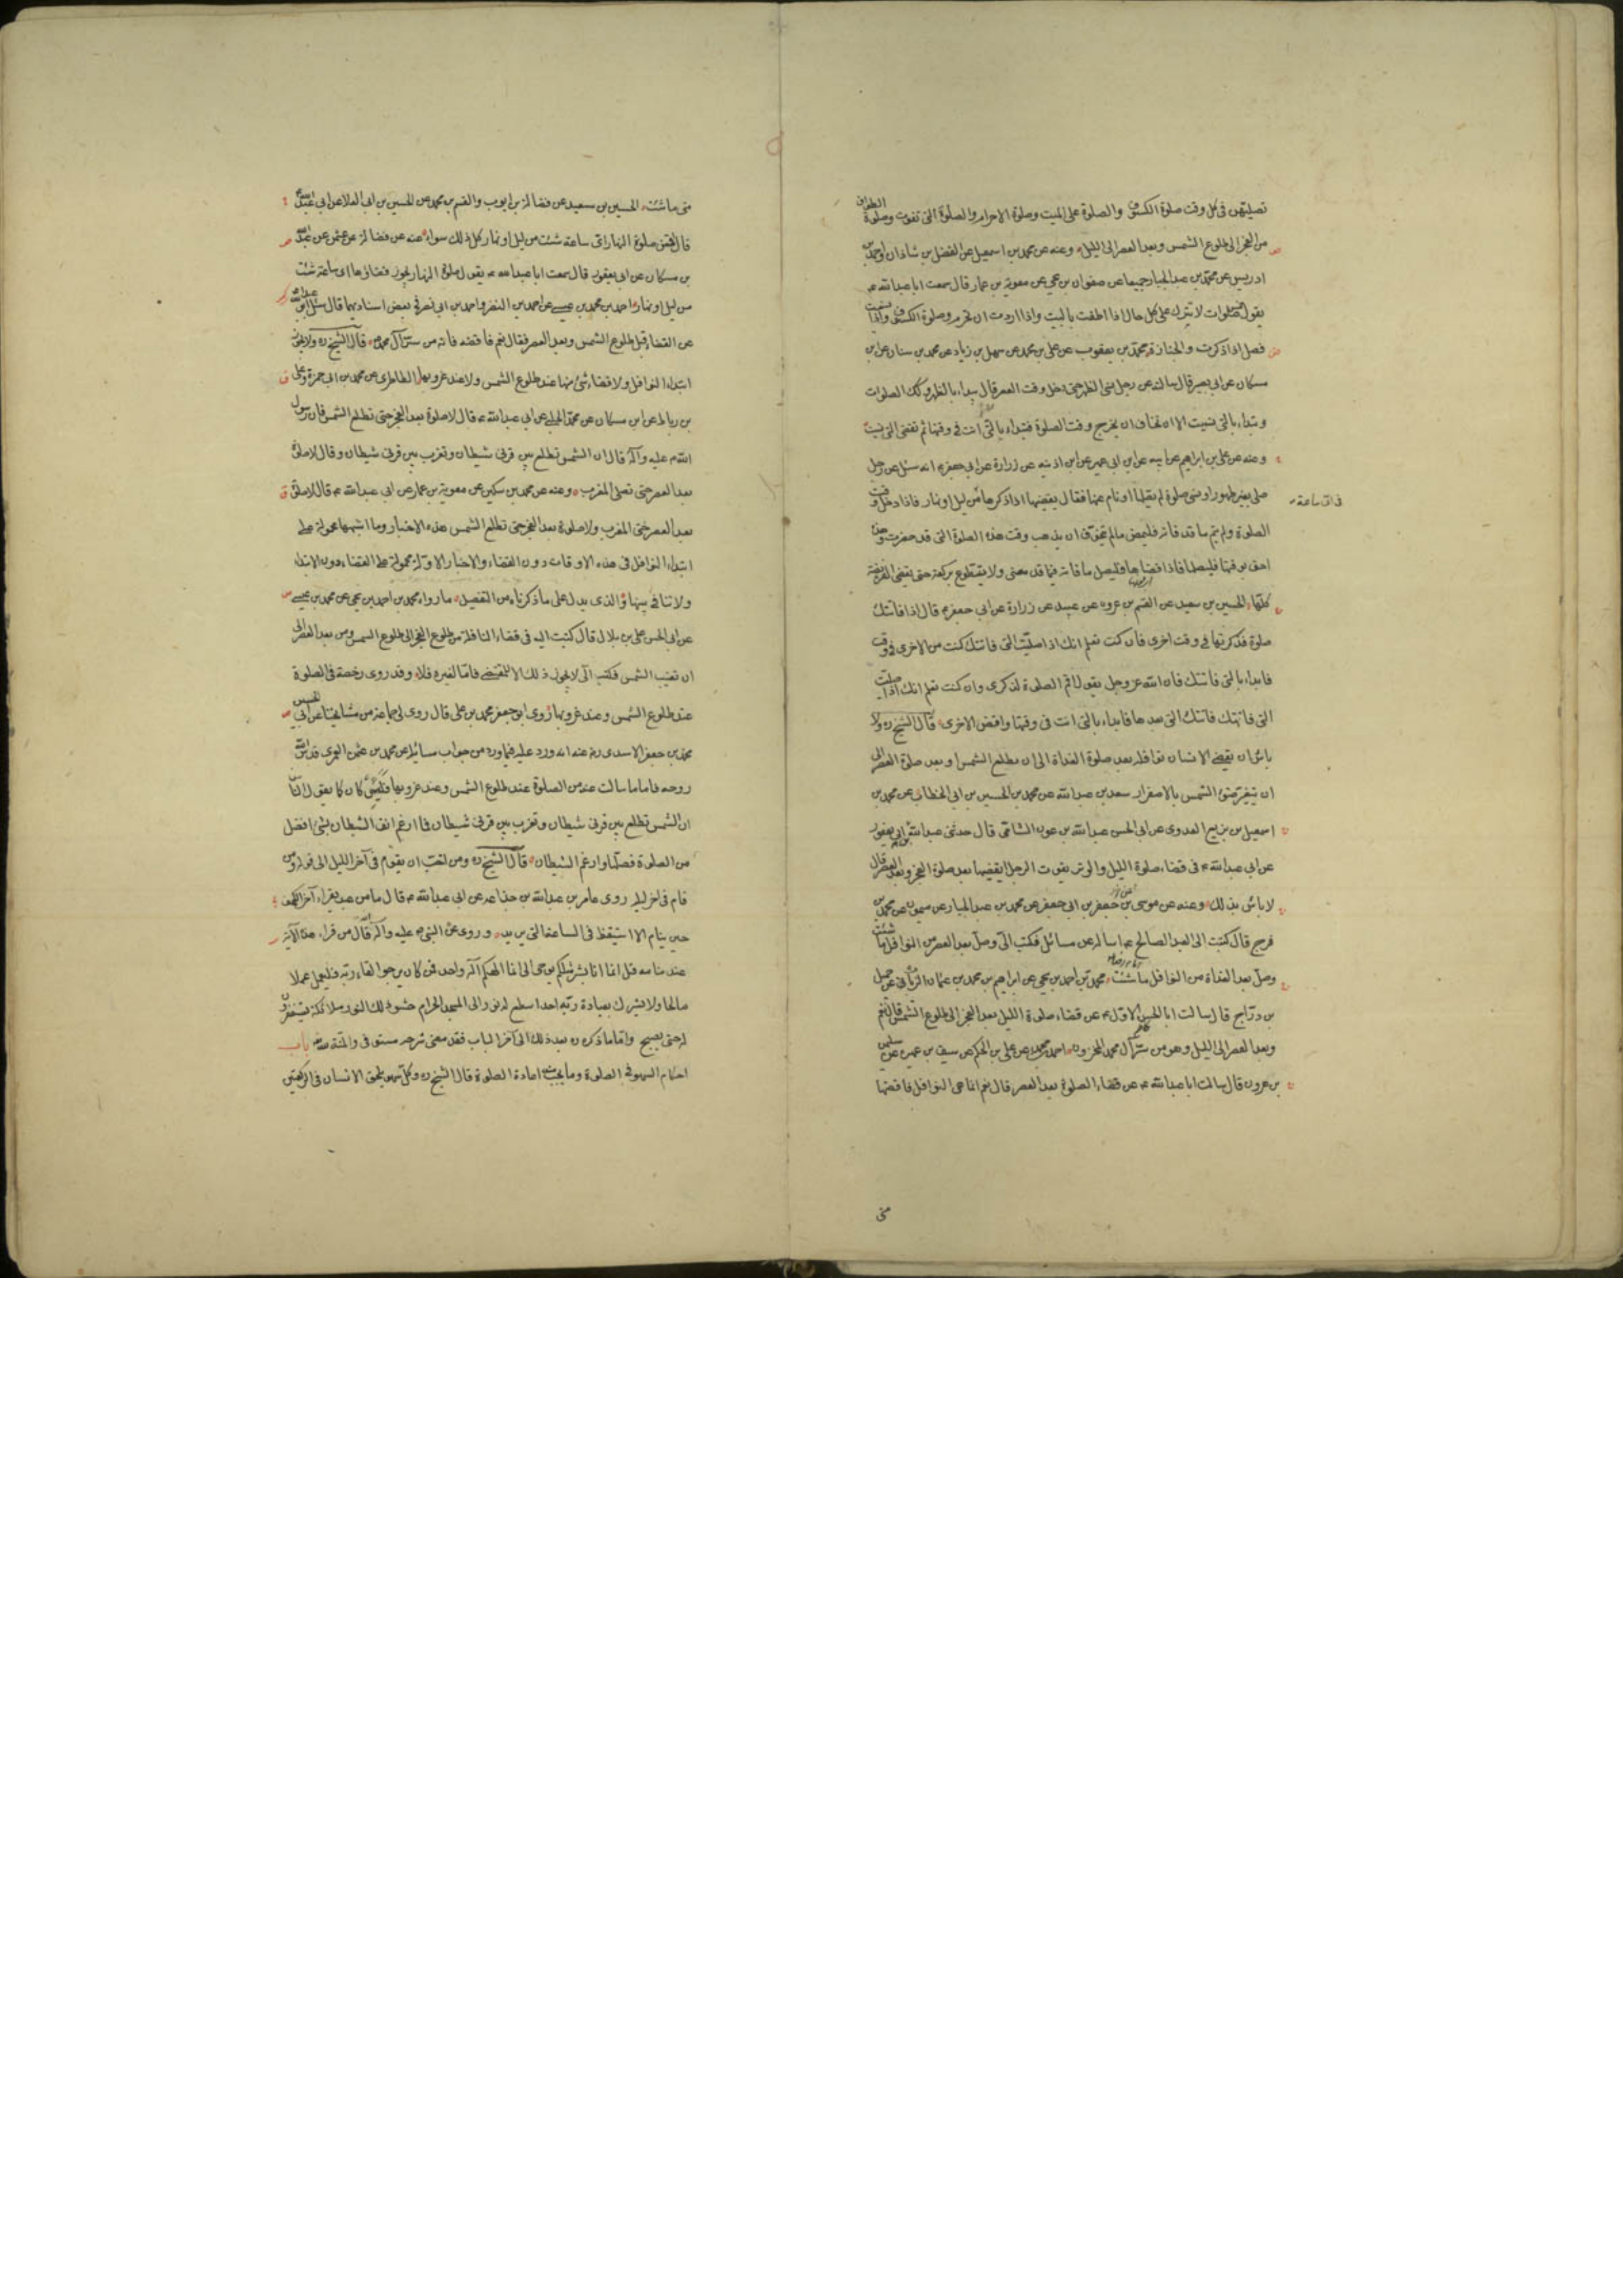 تصليهن فى كل وقت صلوة الكسوف والصلوة على الميت وصلوة الاحرام والصلوة التى تفوت وصلوة الطواف
من الفجر الى طلوع الشمس وبعد العصر الى الليل وعنه عن محمد بن اسمعيل عن الفضل بن شاذان واحمد بن
ادريس عن محمد بن عبد الجبار جميعا عن صفوان بن يحيى عن معوية بن عمار قال سمعت ابا عبد الله ع
يقول خمس صلوات لا تترك على كل حال اذا اطفت بالبيت واذا اردت ان تحرم وصلوة الكسوف واذا نسيت
فصل اذا ذكرت والجنازة محمد بن يعقوب عن على بن محمد عن سهل بن زياد عن محمد بن سنان عن ابن
مسكان عن ابى بصير قال سالته عن رجل نسى الظهر حتى دخل وقت العصر قال يبداء بالظهر وكك الصلوات
وتبداء بالتى نسيت الا ان تخاف ان يخرج وقت الصلوة فتبداء بالتى انت فى وقتها ثم تقضى التى نسيت
وعنه عن على بن ابراهيم عن ابيه عن ابن ابى عمير عن ابن اذينه عن زرارة عن ابى جعفر ع انه سئل عن رجل
صلى بغير طهور او نسى صلوة لم يصلها او نام عنها فقال يقضيها اذا ذكرها من ليل او نهار فاذا دخل وقت
فى اى ساعة
الصلوة ولم يتم ما قد فاته فليمض ما لم يتخوف ان يذهب وقت هذه الصلوة التى قد حضرت وهذه
احق بوقتها فليصلها فاذا قضاها فليصل ما فاته فيما قد مضى ولا يتطوع بركعة حتى يقضى الفريضة
كلها الحسين بن سعيد عن القسم بن عروه عن عبيد عن زرارة عن ابى جعفر ع قال اذا فاتتك
صلوة فذكرتها فى وقت اخرى فان كنت تعلم انك اذا صليت التى فاتتك كنت من الاخرى فى وقت
فابداء بالتى فاتتك فان الله عز وجل يقول اقم الصلوة لذكرى وان كنت تعلم انك اذا صليت
التى فاتتك فاتتك التى بعدها فابداء بالتى انت فى وقتها واقض الاخرى قال الشيخ ره ولا
باس ان يقضى الانسان نوافله بعد صلوة الغداة الى ان يطلع الشمس وبعد صلوة العصر الى
ان يتغير ضوء الشمس بالاصفرار سعد بن عبد الله عن محمد بن الحسين بن ابى الخطاب عن محمد بن
اسمعيل بن بزيع العدوى عن ابى الحسن عبد الله بن عون الشامى قال حدثنى عبد الله بن ابى يعفور
عن ابى عبد الله ع فى قضاء صلوة الليل والوتر يفوت الرجل ايقضيها بعد صلوة الفجر وبعد العصر قال
لا باس بذلك وعنه عن موسى بن جعفر بن ابى جعفر عن محمد بن عبد الجبار عن ميمون عن محمد بن
فرج قال كتبت الى العبد الصالح ع اساله عن مسائل فكتب الى وصل بعد العصر من النوافل ما شئت
وصل بعد الغداة من النوافل ما شئت محمد بن احمد بن يحيى عن ابراهيم عن محمد بن عثمان عن جميل
بن دراج قال سالت ابا الحسن الاول ع عن قضاء صلوة الليل بعد الفجر الى طلوع الشمس قال نعم
وبعد العصر الى الليل وهو من سر آل محمد المخزون احمد بن محمد عن على بن الحكم عن سيف بن عميره عن سليمن
بن هرون قال سالت ابا عبد الله ع عن قضاء الصلوة بعد العصر قال نعم انما هى النوافل فاقضها
متى
متى ما شئت الحسين بن سعيد عن فضالة بن ايوب والقسم بن محمد عن الحسين بن ابى العلا عن ابى عبد الله ع
قال اقض صلوة النهار اى ساعة شئت من ليل او نهار كل ذلك سواء عنه عن فضالة عن عثمن عن عبد الله
بن مسكان عن ابن ابى يعفور قال سمعت ابا عبد الله ع يقول صلوة النهار يجوز قضاؤها اى ساعة شئت
من ليل او نهار احمد بن محمد بن عيسى عن احمد بن النضر واحمد بن ابى نصر فى بعض اسناديهما قال سئل ابو عبد الله
عن القضاء قبل طلوع الشمس وبعد العصر فقال نعم فاقضه فانه من سر آل محمد ص قال الشيخ ره ولا يجوز
ابتداء النوافل ولا قضاء شئ منها عند طلوع الشمس ولا عند غروبها الطاطرى عن محمد بن ابى حمزة وعلى
بن رباط عن ابن مسكان عن محمد الحلبى عن ابى عبد الله ع قال لا صلوة بعد الفجر حتى تطلع الشمس فان رسول
الله ص عليه وآله قال ان الشمس تطلع بين قرنى شيطان وتغرب بين قرنى شيطان وقال لا صلوة
بعد العصر حتى تصلى المغرب وعنه عن محمد بن سكين عن معوية بن عمار عن ابى عبد الله ع قال لا صلوة
بعد العصر حتى المغرب ولا صلوة بعد الفجر حتى تطلع الشمس هذه الاخبار وما اشبهها محمولة على
ابتداء النوافل فى هذه الاوقات دون القضاء والاخبار الاولة محمولة على القضاء دون الابتداء
ولا تنافى بينها والذى يدل على ما ذكرناه من التفصيل ما رواه محمد بن احمد بن يحيى عن محمد بن عيسى
عن ابى الحسن على بن بلال قال كتبت اليه فى قضاء النافلة من طلوع الفجر الى طلوع الشمس ومن بعد العصر الى
ان تغيب الشمس فكتب الى لا يجوز ذلك الا للمقتضى فاما لغيره فلا وقد روى رخصة فى الصلوة
عند طلوع الشمس وعند غروبها روى ابو جعفر محمد بن على قال روى لى جماعة من مشايخنا عن ابى الحسين
محمد بن جعفر الاسدى رض عنه انه ورد عليه فيما ورد من جواب مسائله عن محمد بن عثمن العمرى قدس الله
روحه فاما ما سالت عنه من الصلوة عند طلوع الشمس وعند غروبها فلئن كان كما يقول الناس
ان الشمس تطلع بين قرنى شيطان وتغرب بين قرنى شيطان فما ارغم انف الشيطان بشئ افضل
من الصلوة فصلها وارغم الشيطان قال الشيخ ره ومن احب ان يقوم فى آخر الليل الى قوله ومن
قام فى اخر ليله روى عامر بن عبد الله بن جذاعه عن ابى عبد الله ع قال ما من عبد يقراء آخر الكهف
حين ينام الا استيقظ فى الساعة التى يريد وروى عن النبى ص عليه وآله انه قال من قراء هذه الآية
عند منامه قل انما انا بشر مثلكم يوحى الى انما الهكم اله واحد فمن كان يرجوا لقاء ربه فليعمل عملا
صالحا ولا يشرك بعبادة ربه احدا سطع له نور الى المسجد الحرام حشو ذلك النور ملائكة يستغفرون
له حتى يصبح واما ما ذكره ره بعد ذلك الى آخر الباب فقد مضى شرحه مستوفى والمنة لله باب
احكام السهو فى الصلوة وما يجب منه اعادة الصلوة قال الشيخ ره وكل سهو يلحق الانسان فى الركعتين